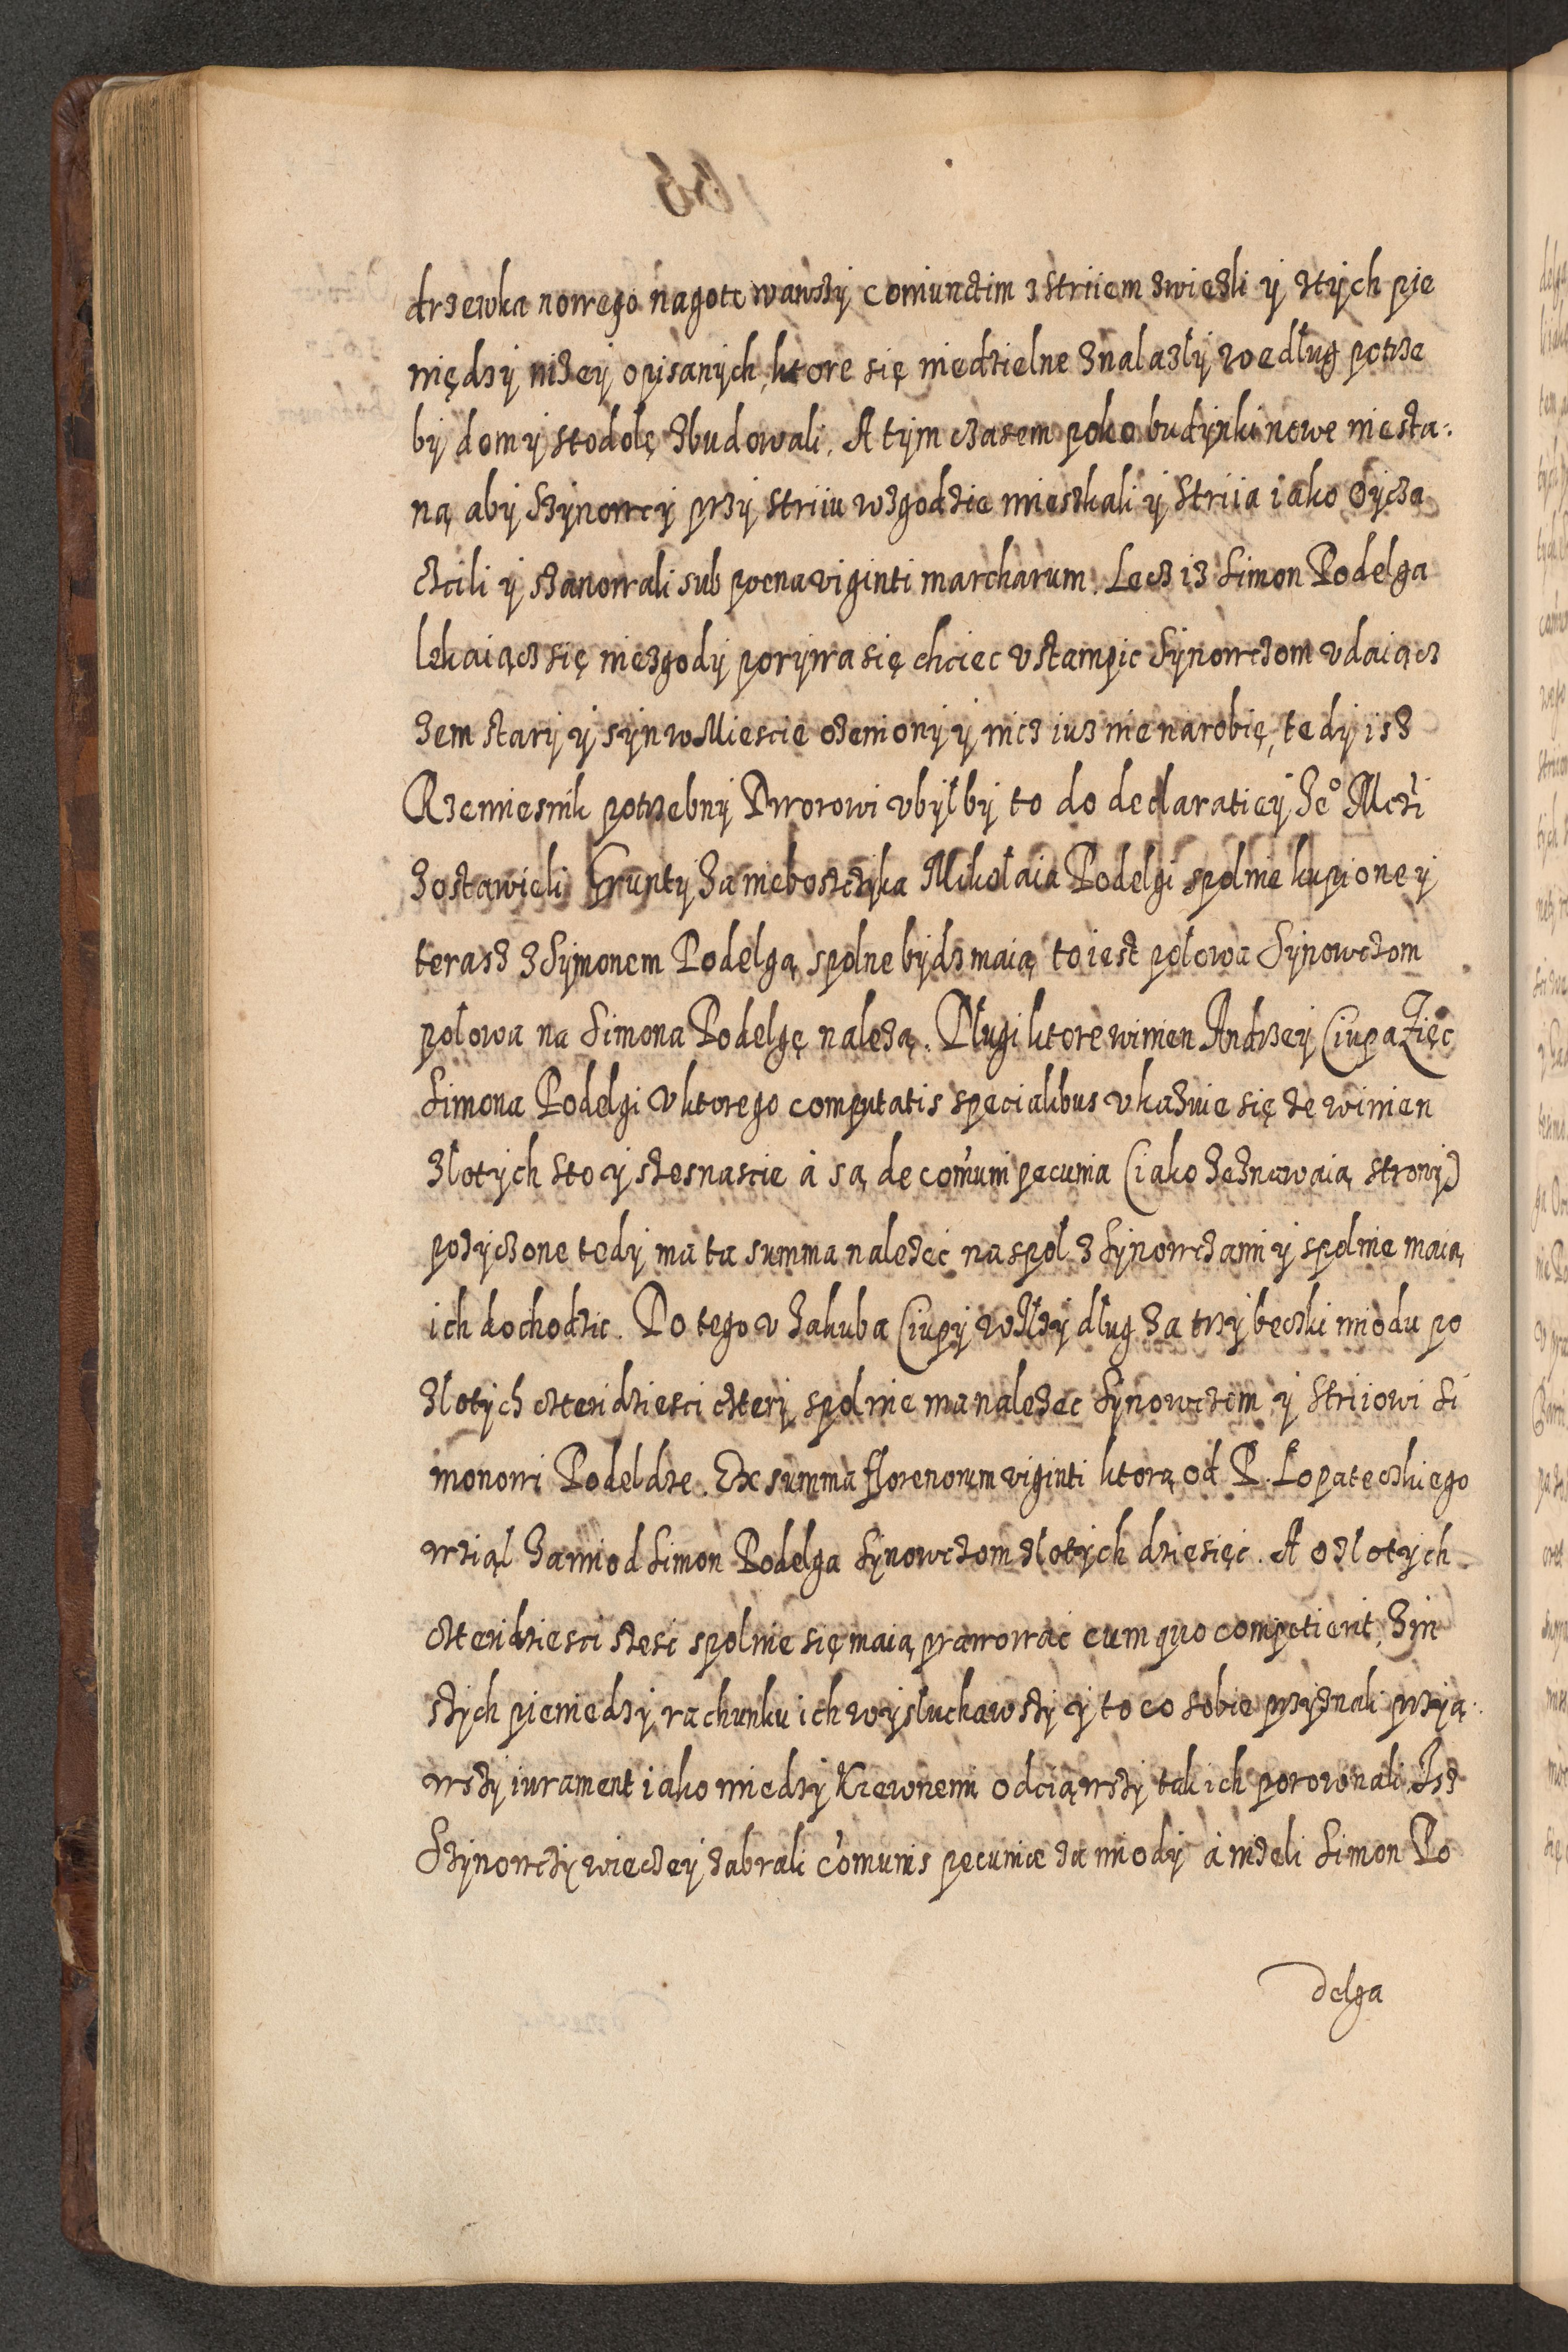 drzewka nowego nagotowawszÿ coniunctim z Striiem zwiezli ÿ ztÿch pie
niędzÿ niżeÿ opisanÿch, ktore się niedzielne znalazłÿ według potrze
bÿ dom ÿ stodołę zbudowali. A tÿm czasem poko budÿnki nowe niesta:
ną abÿ Szÿnowcÿ przÿ Striiu wzgodzie mieszkali ÿ Striia iako Oÿcza
czcili ÿ szanowali sub poena viginti marcharum. Lecz iz Simon Podelga
lekaiącz się niezgodÿ porÿwa się chciec vstampic Sÿnowczom vdaiącz
żem starÿ ÿ sÿn w Miescie ożenionÿ ÿ nicz iuz nie narobię, tedÿ isz
Rzemiesnik potrzebnÿ Dworowi vbÿłbÿ to do declaratieÿ Je° Mczi
zostawieli Gruntÿ za nieboszczÿka Mikołaia Podelgi spolnie kupione ÿ
terasz z Sÿmonem Podelgą spolne bÿdz maią to iest połowa Sÿnowczom
połowa na Simona Podelgę należą. Długi ktore winien Andrzeÿ Ciupa Zięc
Simona Podelgi v ktorego computatis specialibus vkazuie się że winien
złotÿch sto ÿ szesnascie à są de com̃uni pecunia (iako zeznawaią stronÿ)
pożÿczone tedÿ ma ta summa należeć na społ z Sÿnowczami ÿ spolnie maią
ich dochodzic. Do tego v Jakuba Ciupÿ dług za trzÿ beczki miodu po
złotÿch czteridziesci czterÿ spolnie ma należec Sÿnowczom ÿ Striiowi Si
monowi Podeldze. Ex summa florenorum viginti ktorą od P. Łopateczkiego
wziął za miod Simon Podelga Sÿnowczom złotÿch dziesięć. A o złotÿch
czteridziesci szesc spolnie się maią prawować cum quo competierit, Z in
szÿch pieniedzÿ rachunku ich wÿsłuchawszÿ ÿ to co sobie przÿznali przÿą:
wszÿ iurament iako miedzÿ Krewnemi odciąwszÿ tak ich porownali. Isz
Szÿnowczÿ wieczeÿ zabrali com̃unis pecuniæ za miodÿ à niżeli Simon Po
delga